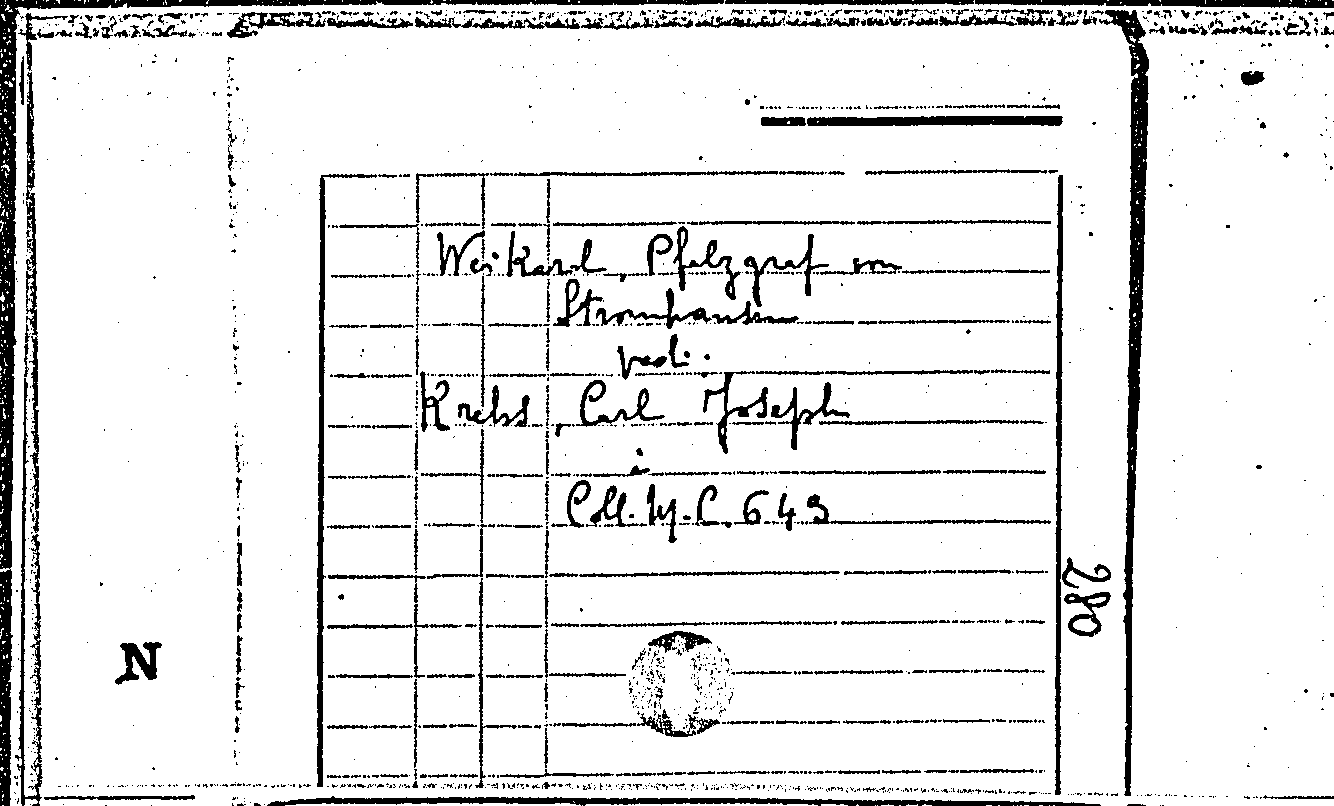 Weikard, Pfalzgraf von
Stromhausen
vedi:
Krebs, Carl Joseph
i
Coll. M. C. 643
280
N